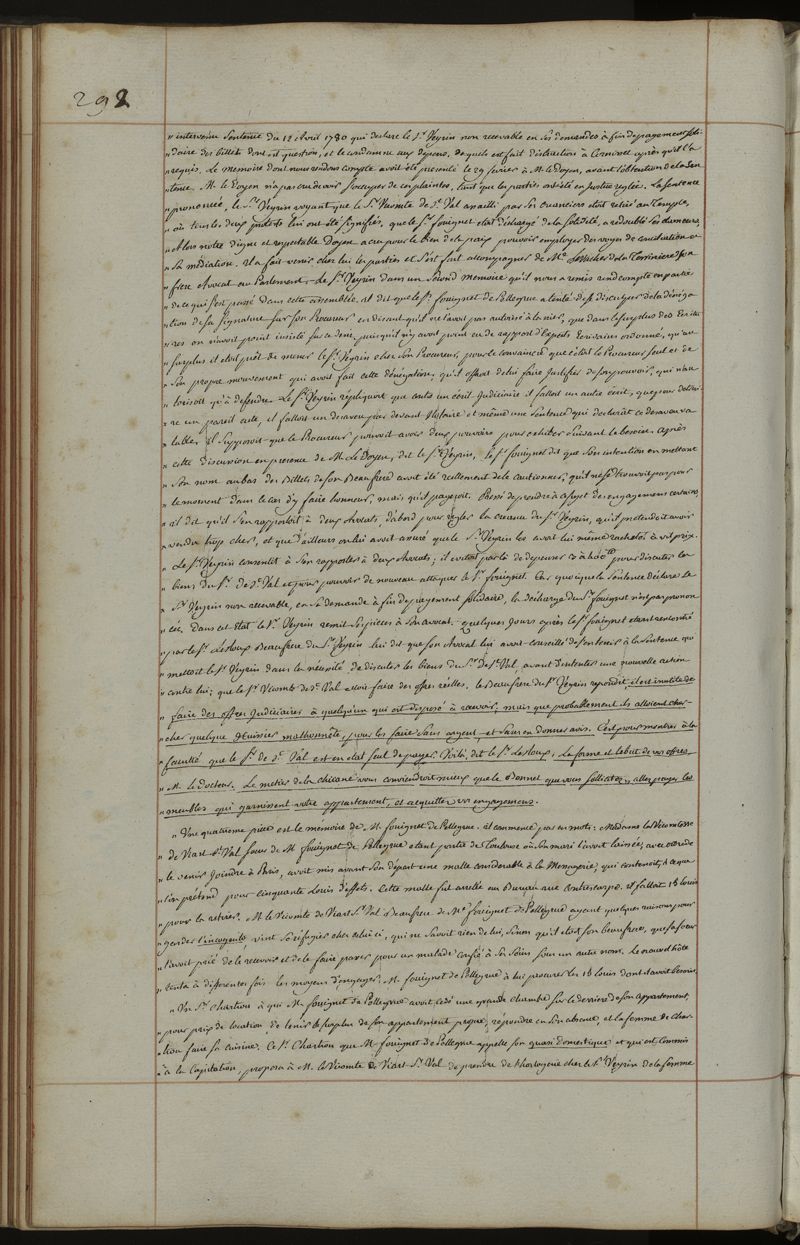 292
" intervenu Sentence du 12 Avril 1780 qui declare le Sr. Veyrin non recevable en ses demandes à fin de payement soli-
" daire des billets dont est question, et le condamne aux depens, desquels est fait distraction à Cornorel après qu'il l'a
" requis. Le memoire dont nous rendons compte avoit été presenté le 29 fevrier à M. le Doyen, avant l'obtention de la Sen
" tence. M. le Doyen n'a pas cru devoir s'occuper de ces plaintes, tant que les parties ont été en Justice reglée. La Sentence
" prononcée, le Sr. Veyrin voyant que le Sr. Vicomte de St. Val assailli par ses creanciers etoit retiré au Temple,
" où tous les deux lui ont été signifiés, que le Sr. fouignet etoit dechargé de la Solidité, a redoublé ses clameurs,
" Alors notre digne et respectable Doyen a cru pour le bien de la paix pouvoir employer des voyes de conciliation et
" Sa médiation. Il a fait venir chez lui les parties et s'est fait accompagner de Me. Lethier de la son
" frere Avocat au Parlement. Le Sr. Veyrin dans un second Memoire qu'il nous a remis rend compte en partie
" de ce qui s'est passé dans cette assemblée. il dit que le Sr. fouignet de Pellegrue a tenté de se disculper de la dénéga
" tion de sa signature sur son Procureur en disant qu'il ne l'avoit pas autorisé à la nier, que dans le surplus des Ecritu
" res on n'avoit point insisté sur ce deni, puisqu'il n'y avoit point eu de rapport d'Experts Ecrivains ordonné, qu'au
" surplus il etoit prêt de mener le Sr. Veyrin chez son Procureur, pour le convaincre que c'étoit le Procureur seul et de
" son propre mouvement qui avoit fait cette dénégation, qu'il offroit de lui faire justifier de son pouvoir, qui n'au
" torisoit qu'à deffendre. Le Sr. Veyrin répliquoit que contre un écrit Judiciaire il falloit un autre écrit, que pour detrui
" re un pareil acte, il falloit un desaveu par devant Notaire et même une Sentence qui declarât ce desaveu va
" lable. Il supposoit que le Procureur pouvoit avoir deux pouvoirs pour exhiber suivant le besoin. après
" cette discussion en presence de M. Le Doyen, dit le Sr. Veyrin, le Sr. fouignet dit que son intention en mettant
" son nom au bas des Billets de son Beaufrere avoit été reellement de le cautionner, qu'il ne se trouvoit pas pour
" le moment dans le cas d'y faire honneur, mais qu'il payeroit. Pressé de prendre à ce sujet des engagemens certains,
" il dit qu'il s'en rapportoit à deux Avocats, d'abord pour regler la creance du Sr. Veyrin, qu'il pretendoit avoir
" vendu trop cher, et que d'ailleurs on lui avoit assuré que le Sr. Veyrin les avoit lui même rachetés à vil prix.
" Le Sr. Veyrin consentit à s'en rapporter à deux Avocats; il evitoit par là de depenser 3 à 400 tt pour discuter les
" biens du Sr. de St. Val et pour pouvoir de nouveau attaquer le Sr. fouignet. Car quoique la Sentence declare le
" Sr. Veyrin non recevable, en sa demande à fin de payement solidaire, la decharge du Sr. fouignet n'est pas pronon
" cée. Dans cet état le Sr. Veyrin remit ses pieces à son avocat. Quelques Jours après le Sr. fouignet etant rencontré
" par le Sr. Desloup Beaufrere du Sr. Veyrin lui dit que son Avocat lui avoit conseillé de s'en tenir à la Sentence qui
" mettoit le Sr. Veyrin dans la nécessité de discuter les biens du Sr. de St. Val, avant d'intenter une nouvelle action
" contre lui; que le Sr. Vicomte de St. Val alloit faire des offres réelles. le Beaufrere du Sr. Veyrin repondit, il est inutile de
" faire des offres Judiciaires à quelqu'un qui est disposé à recevoir, mais que probablement ils alloient cher-
" cher quelque Huissier malhonnête, pour les faire sans argent, et sans en donner avis. C'est pour montrer à la
" faculté que le Sr. de St. Val est en etat seul de payer. Voilà, dit le Sr. Desloup, la forme et le but de vos offres
" M. le Docteur. Le metier de la chicane vous conviendroit mieux que le Bonnet que vous sollicitez, allez payer les
" meubles qui garnissent votre appartement, et acquitter vos engagemens.
" Une quatrieme piece est le memoire de M. fouignet de Pellegrue. il commence par ces mots: Madame la Vicomtesse
" de Viart St. Val soeur de M. fouignet de Pellegrue etant partie de Toulouse où son mari l'avoit laissée, avec ordre de
" le venir joindre à Paris, avoit mis avant son départ une malle considerable à la Messagerie, qui contenoit, à ce que
" l'on prétend pour cinquante Louis d'effets. Cette malle fut arrêtée au Bureau rue Contrescarpe. il falloit 18 louis
" pour la retirer. M. le Vicomte de Viart St. Val Beaufrere de Mr. fouignet de Pellegrue ayant quelques raisons pour
" garder l'incognito vint se réfugier chez celui ci, qui ne savoit rien de lui, sinon qu'il etoit son beaufrere, que sa soeur
" l'avoit prié de le recevoir et de le faire passer pour un malade confié à ses soins sous un autre nom. Le nouvel hôte
" tenta à differentes fois les moyens d'engager M. fouignet de Pellegrue à lui procurer les 18 louis dont il avoit besoin.
" Un Sr. Chartion à qui M. fouignet de Pellegrue avoit cédé une grande chambre sur le derriere de son appartement,
" pour prix de location, de tenir le surplus de son appartement propre, répondre en son absence, et la femme de Char-
" tion faire sa cuisine. Ce Sr. Chartion que M. fouignet de Pellegrue appelle son quasi domestique et qui est Commis
" à la Capitation, proposa à M. le Vicomte de Viart St. Val de prendre de l'horlogerie chez le Sr. Veyrin dont la femme